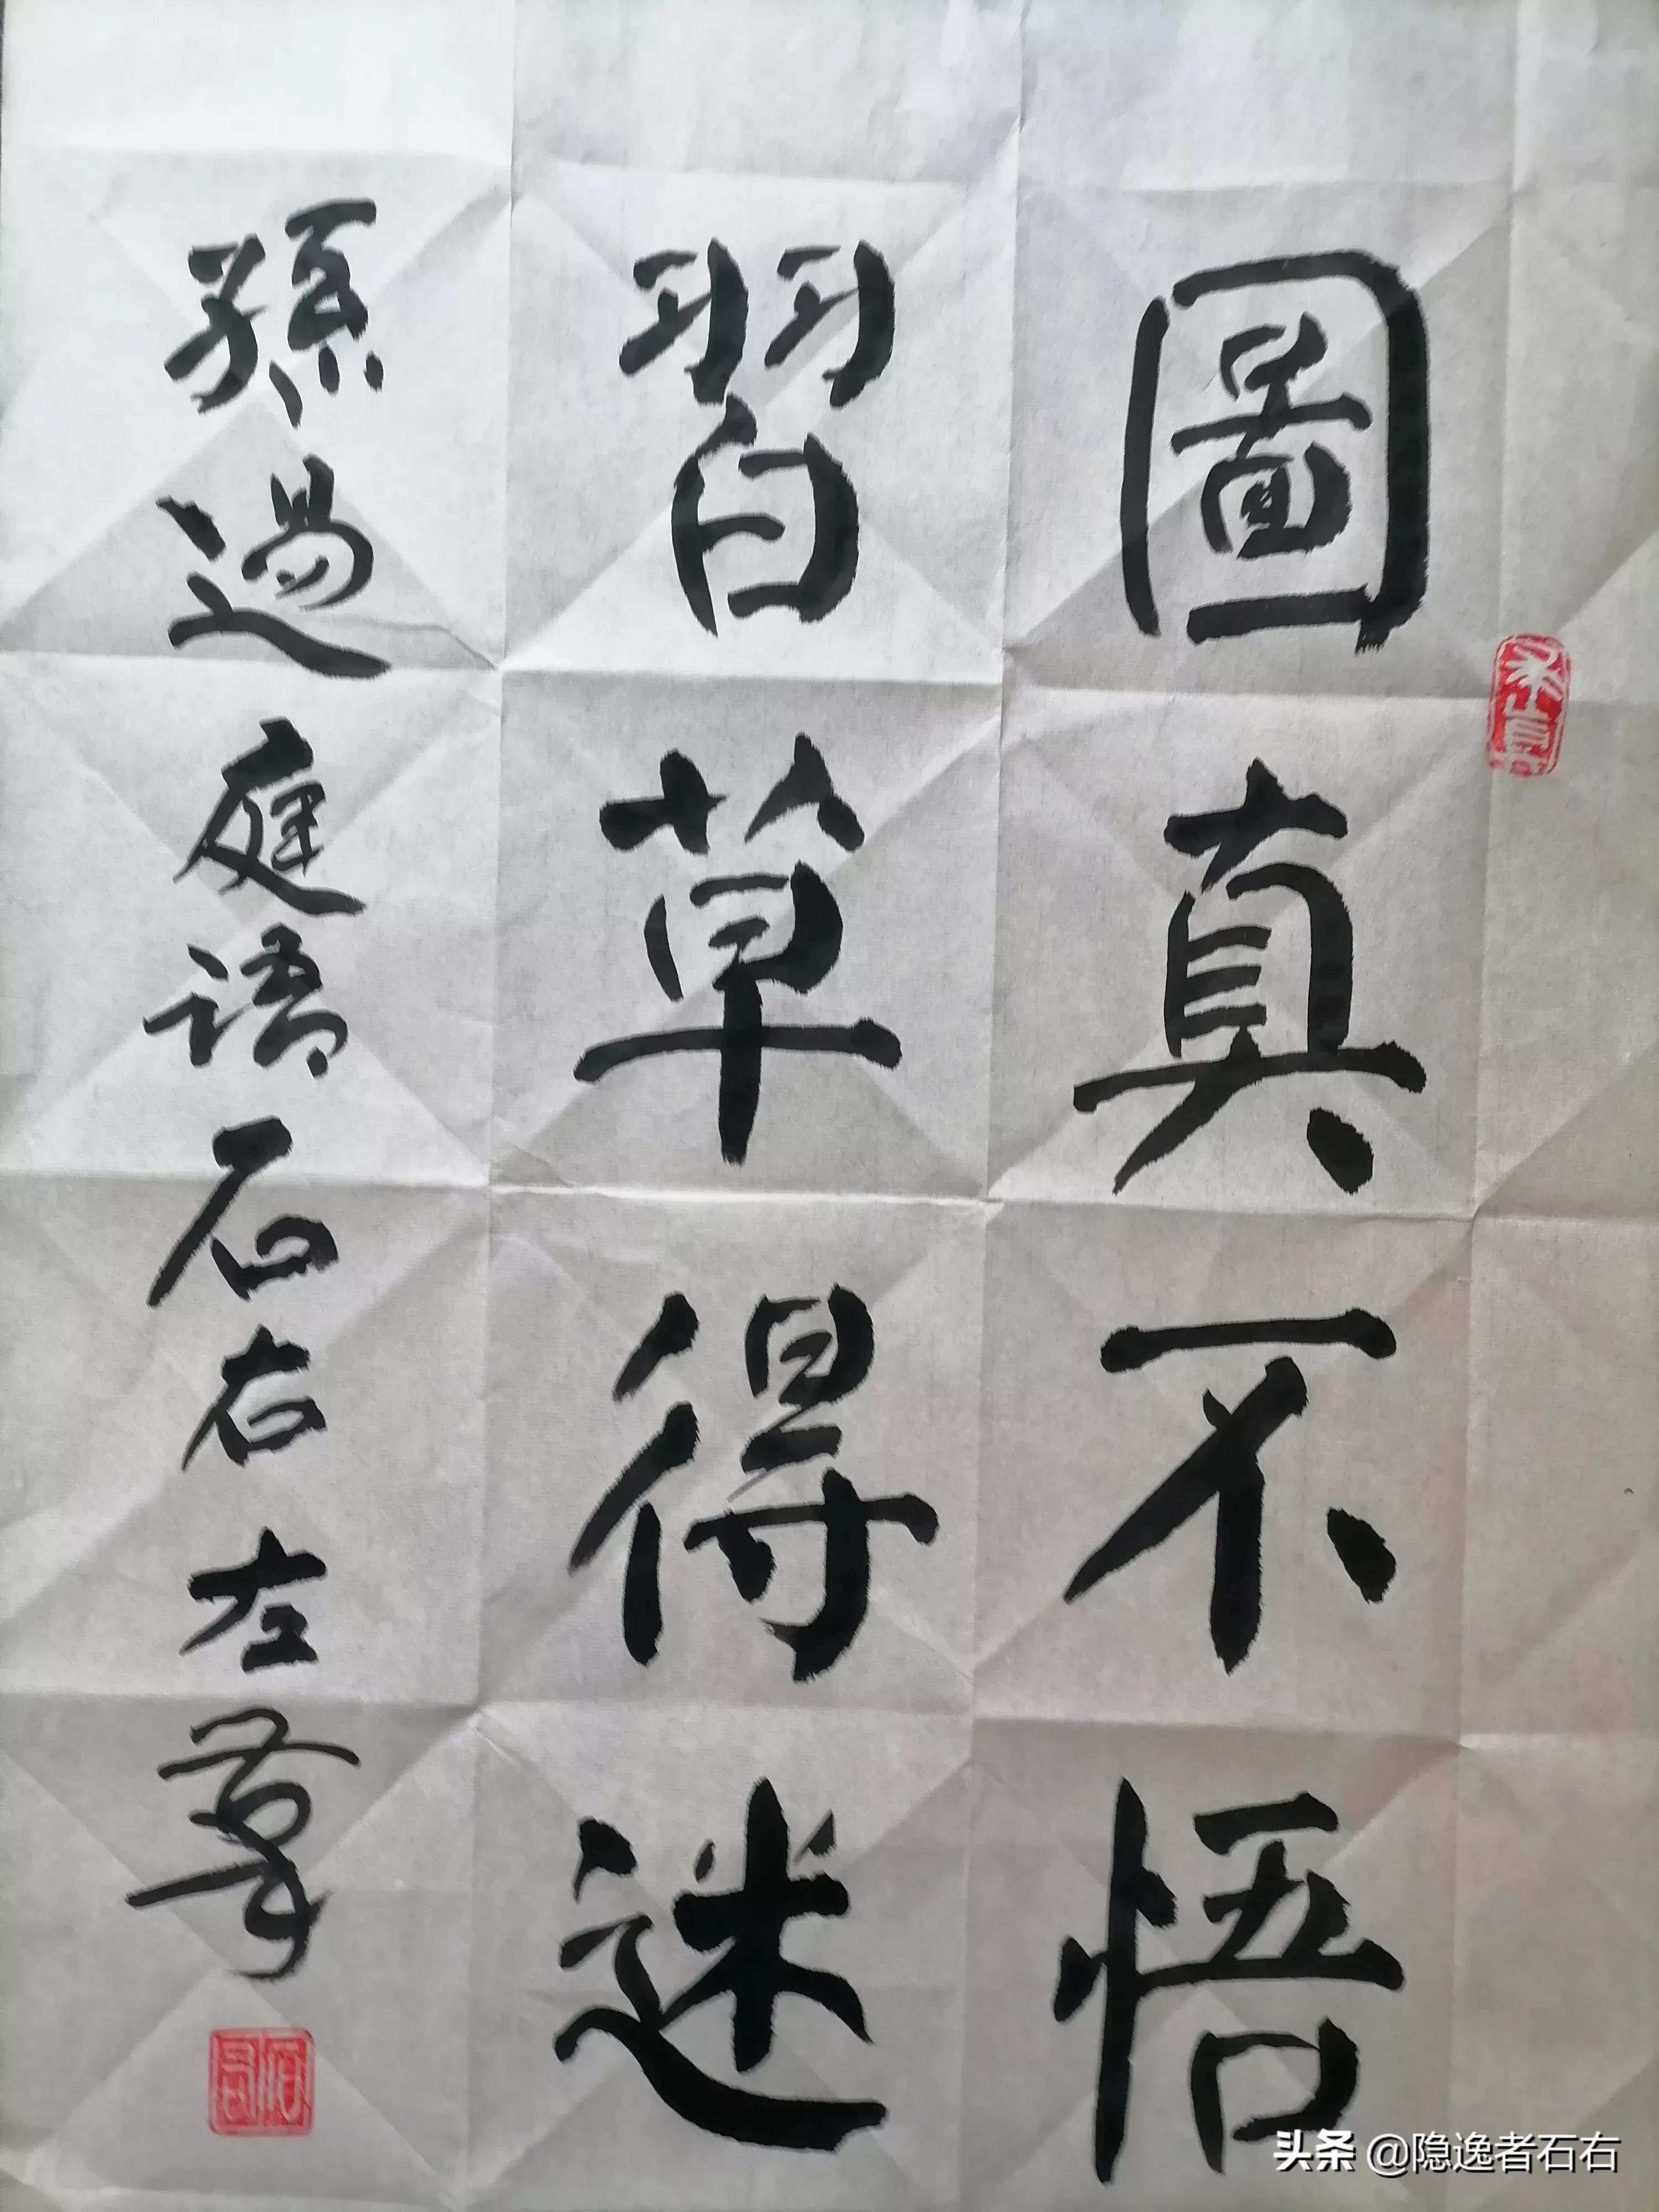 圖真不悟
習草得迷
孫過庭語石右左筆
头条 @隐逸者石右